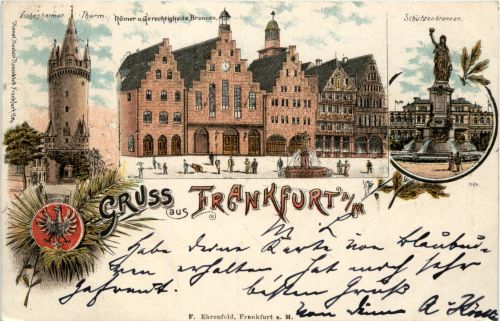 Eschenheimer Thurm.
Römer u. Gerechtigkeits Brunnen.
Schützenbrunnen.
GRUSS aus FRANKFURT A/M
Habe deine Karte von Blaubeu-
ren erhalten hat mich sehr
gefreut. besten Gruß
von
F. Ehrenfeld, Frankfurt a. M.